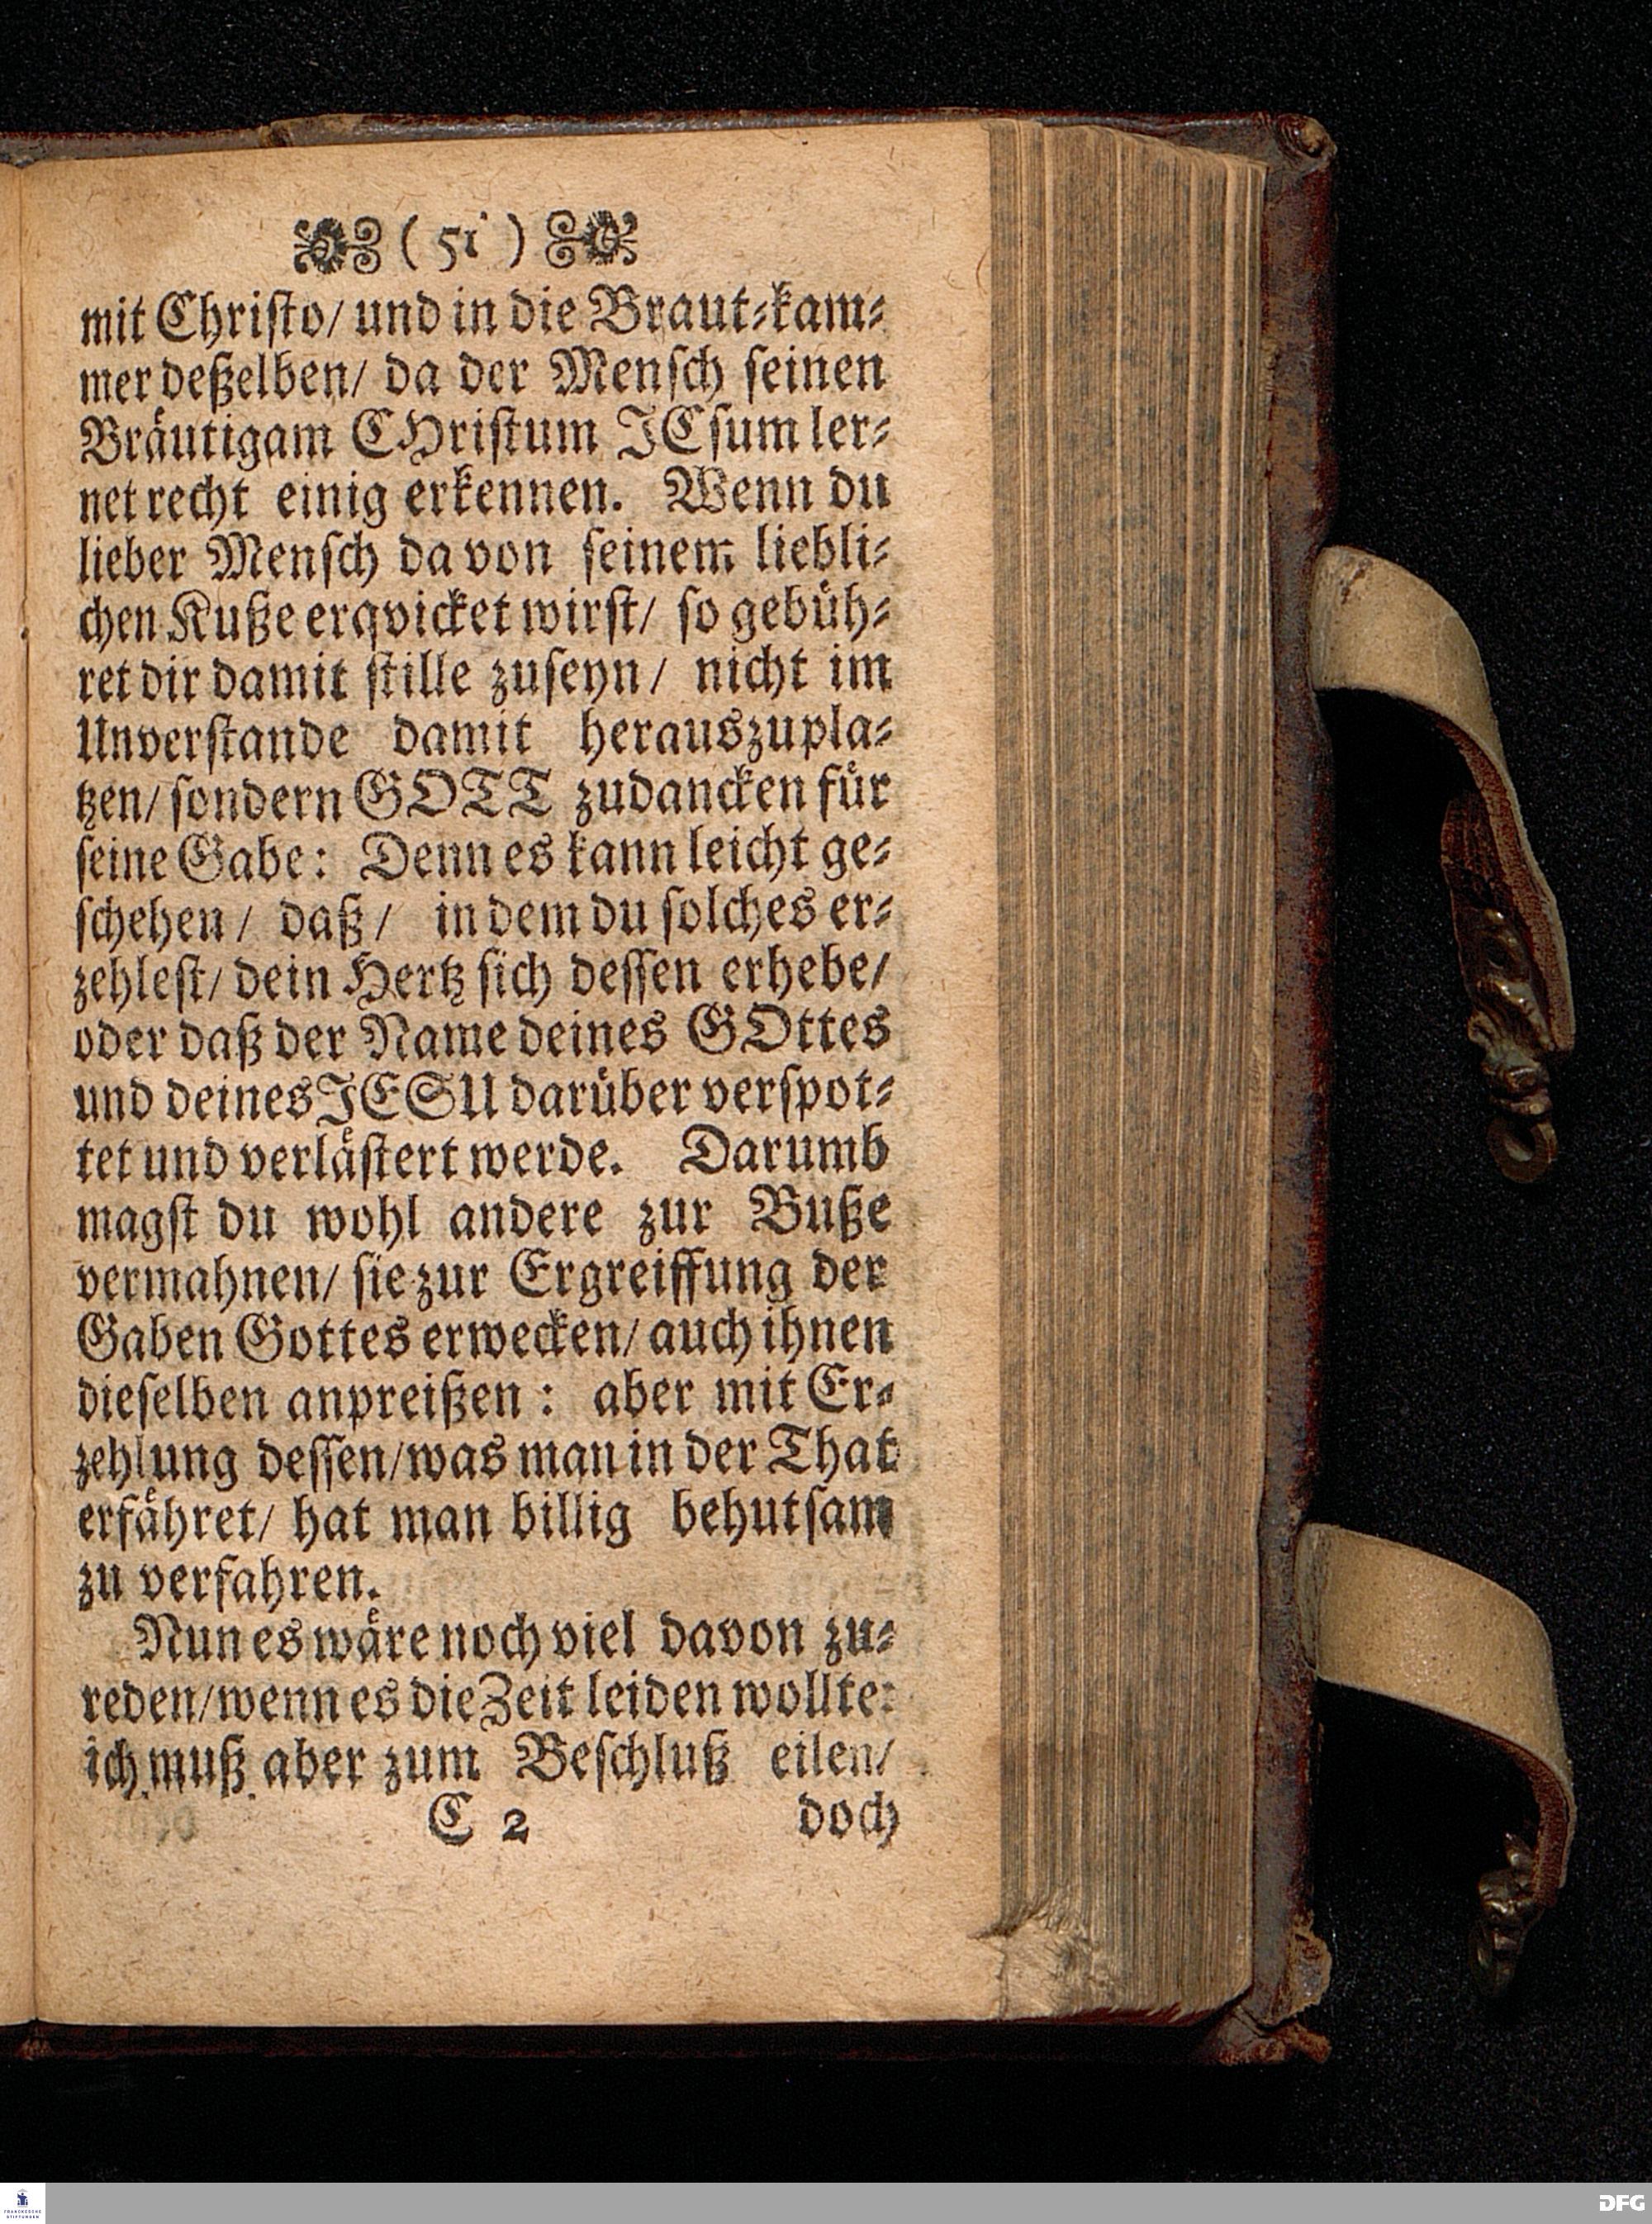 ( 51 )
mit Chriſto/ und in die Braut⸗kam⸗
mer deßelben/ da der Menſch ſeinen
Bräutigam CHriſtum JEſum ler⸗
net recht einig erkennen. Wenn du
lieber Menſch da von ſeinem liebli⸗
chen Kuße erqvicket wirſt/ ſo gebüh⸗
ret dir damit ſtille zuſeyn/ nicht im
Unverſtande damit herauszupla⸗
tzen/ ſondern GOTT zudancken für
ſeine Gabe: Denn es kann leicht ge⸗
ſchehen/ daß/ in dem du ſolches er⸗
zehleſt/ dein Hertz ſich deſſen erhebe/
oder daß der Name deines GOttes
und deines JESU darüber verſpot⸗
tet und verläſtert werde. Darumb
magſt du wohl andere zur Buße
vermahnen/ ſie zur Ergreiffung der
Gaben Gottes erwecken/ auch ihnen
dieſelben anpreißen: aber mit Er⸗
zehlung deſſen/ was man in der That
erfähret/ hat man billig behutſam
zu verfahren.
Nun es wäre noch viel davon zu⸗
reden/ wenn es die Zeit leiden wollte:
ich muß aber zum Beſchluß eilen/
C 2 doch
FRANCKESCHE
STIFTUNGEN
DFG